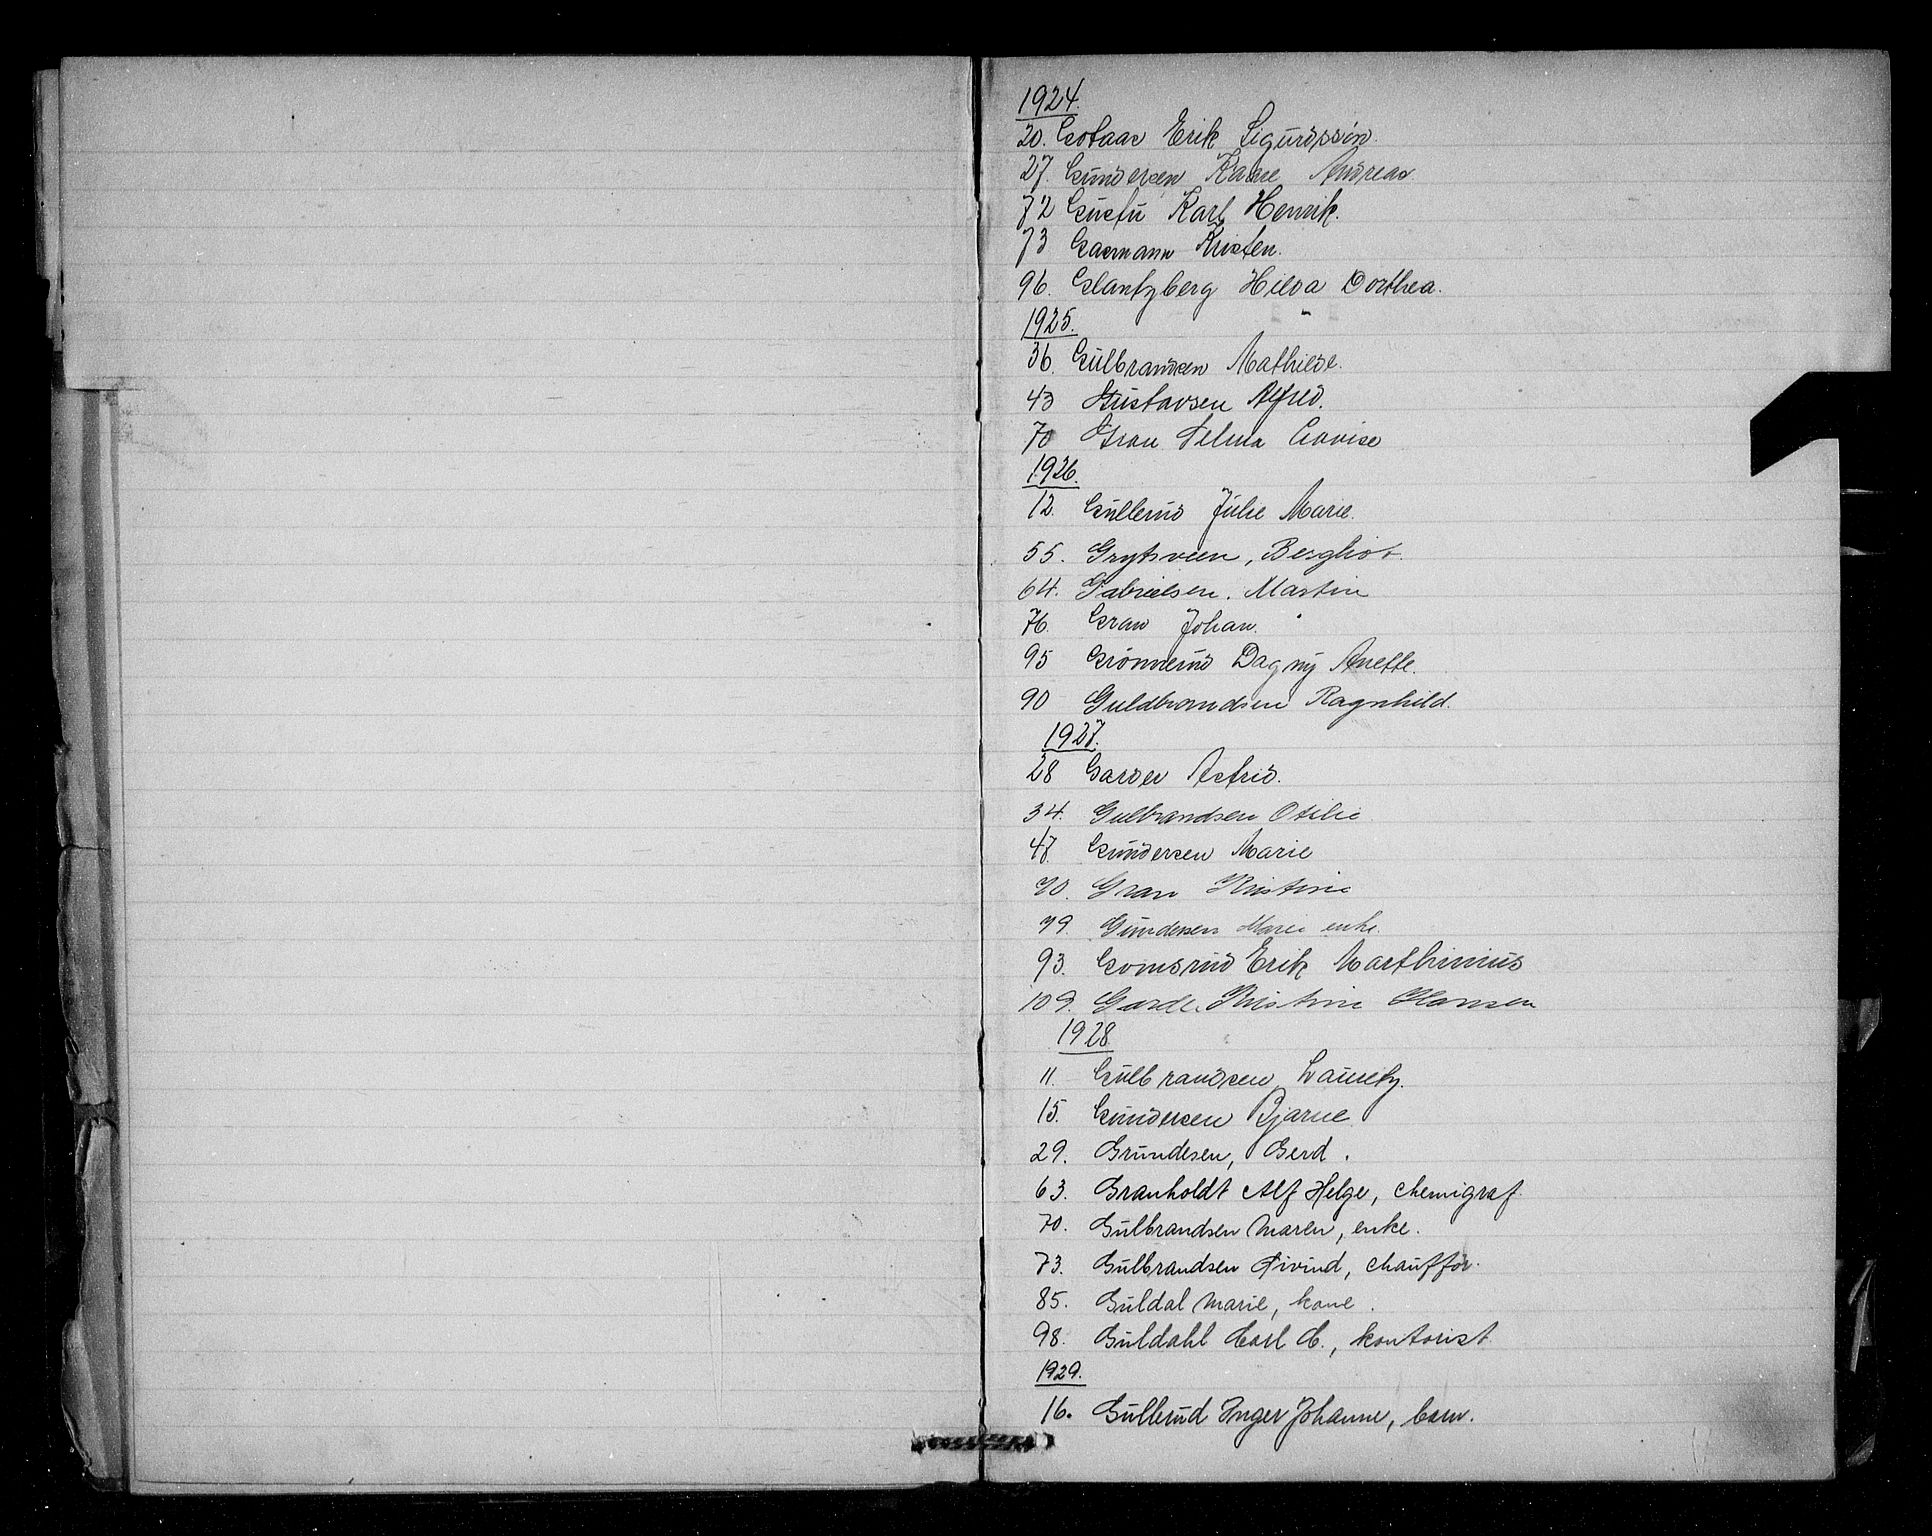 1924.
20. Gotaas Erik Sigurdssön.
27. Gundersen Kaare Andreas
72 Gustu Karl Henrik.
73 Gasmann Kristen.
96. Glantzberg Hilda Dorthea.
1925.
36. Gulbrandsen Mathilde.
43 Gustavsen Alfred.
70 Gran Selma Lovise
1926.
12. Gullerud Julie Marie.
55. Grytsveen, Bergliot.
64. Gabrielsen. Martin
76. Gran Johan.
95 Grönnerud Dagny Anette.
90 Guldbrandsen Ragnhild.
1927.
28 Garder Astrid.
34. Gulbrandsen Otilie
47. Gundersen Marie
70. Gran Kristine
79. Gundersen Marie enke.
93. Gomsrud Erik Marthinius
109. Garde. Kristine Hansen
1928
11. Gulbrandsen Lauritz.
15. Gundersen Bjarne
29. Grundesen, Gerd.
63. Granholdt Alf Helge, chemigraf.
70. Gulbrandsen Maren, enke.
73. Gulbrandsen Øivind, chaufför.
85. Guldal Marie, kone.
98. Guldahl Carl C., kontorist.
1929.
16. Gullerud Inger Johanne, barn.